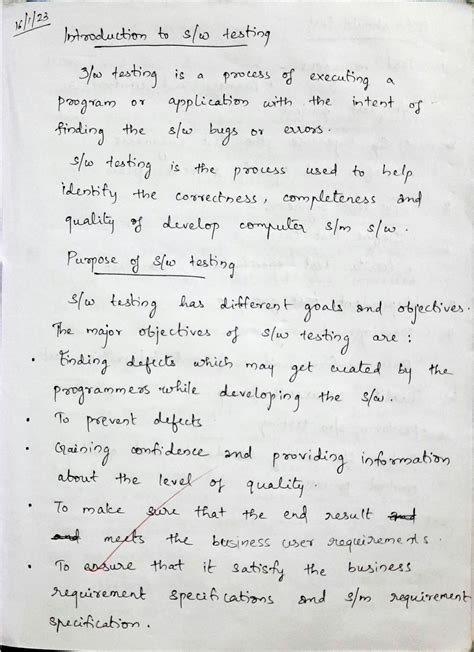 16/1/23
Introduction to S/w testing
S/w testing is a process of executing a
program or application with the intent of
finding the s/w bugs or errors.
S/w testing is the process used to help
identify the correctness, completeness and
quality of develop computer s/m s/w.
Purpose of S/w testing
S/w testing has different goals and objectives.
The major objectives of S/w testing are :
• Finding defects which may get created by the
programmers while developing the s/w.
• To prevent defects
• Gaining confidence and providing information
about the level of quality.
• To make sure that the end result and
and meets the business user requirements.
• To ensure that it satisfy the business
requirement specifications and s/m requirement
specification.